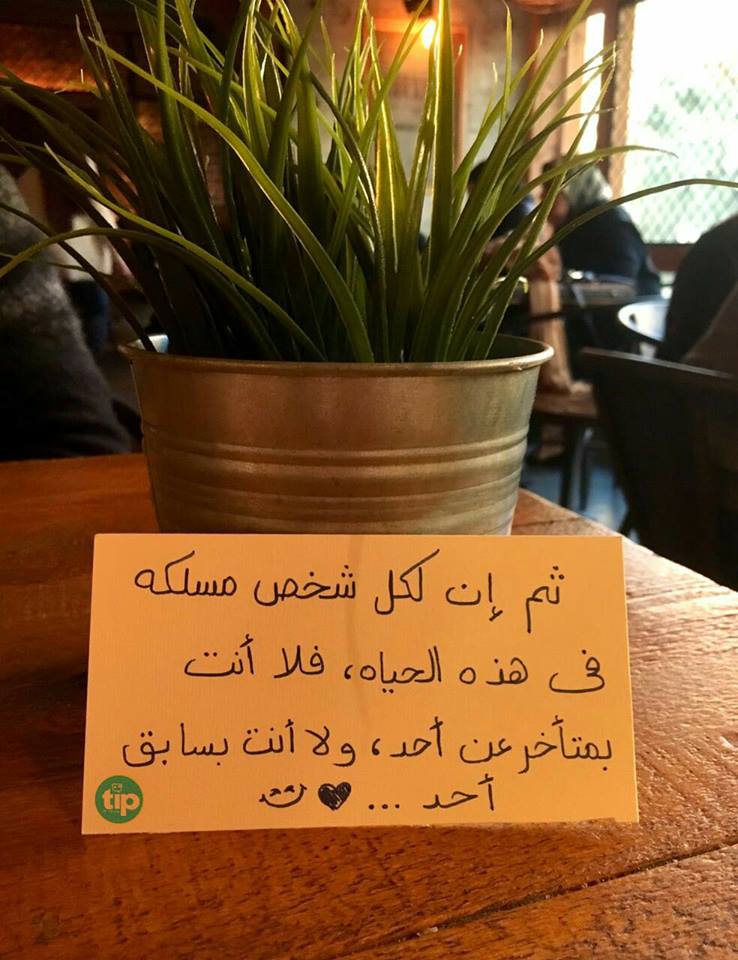 ثم إن لكل شخص مسلكه
فى هذه الحياه، فلا أنت
بمتأخر عن أحد، ولا أنت بسابق
أحد ...
tip